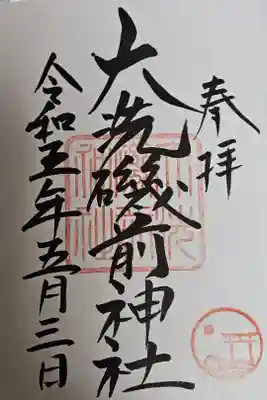 奉拝
大洗磯前神社
令和五年五月三日